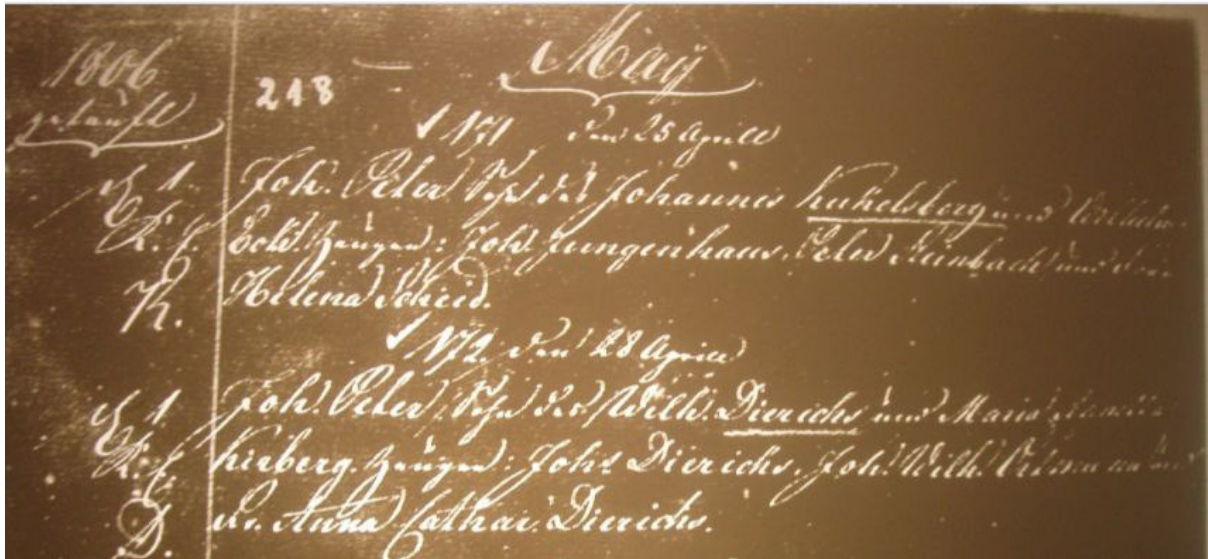 1806
getauft
218
May
171 den 25 Aprill
d. 1. Joh. Peter Sohn des Johannes Kukelsberg und
K. E. Zeugen: Joh. Jungenhaus, Peter Steinbach und
K. Helena Scheid.
172. den 28 Aprill
d. 1. Joh. Peter, Sohn des Wilh. Dierichs und Maria
K. E. Kirberg. Zeugen: Johs Dierichs, Joh. Wilh.
D. Anna Cathar. Dierichs.